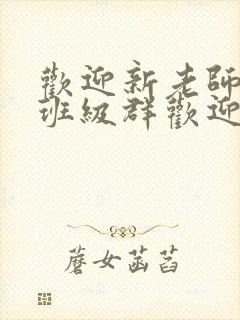 歡迎新老師
班級群歡迎
蘑女菡萏